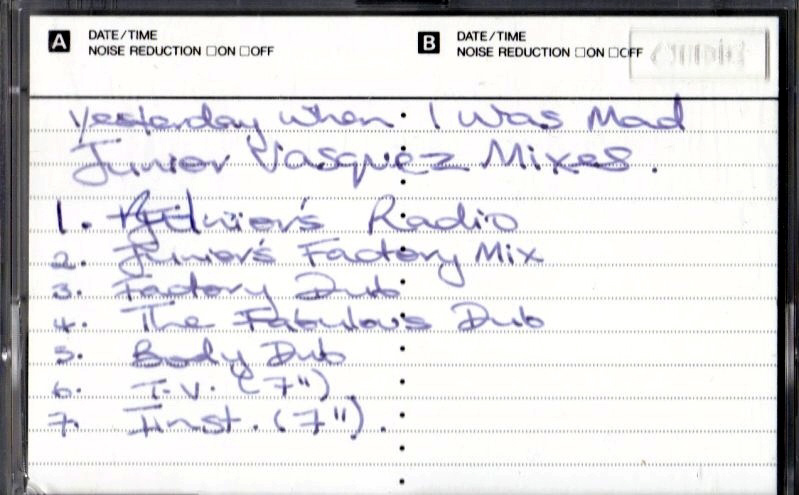 A DATE/TIME
NOISE REDUCTION □ON □OFF
B DATE/TIME
NOISE REDUCTION □ON □OFF
Yesterday When I Was Mad
Junior Vasquez Mixes.
1. Junior's Radio
2. Junior's Factory Mix
3. Factory Dub
4. The Fabulous Dub
5. Body Dub
6. T.V. (7")
7. Inst. (7").